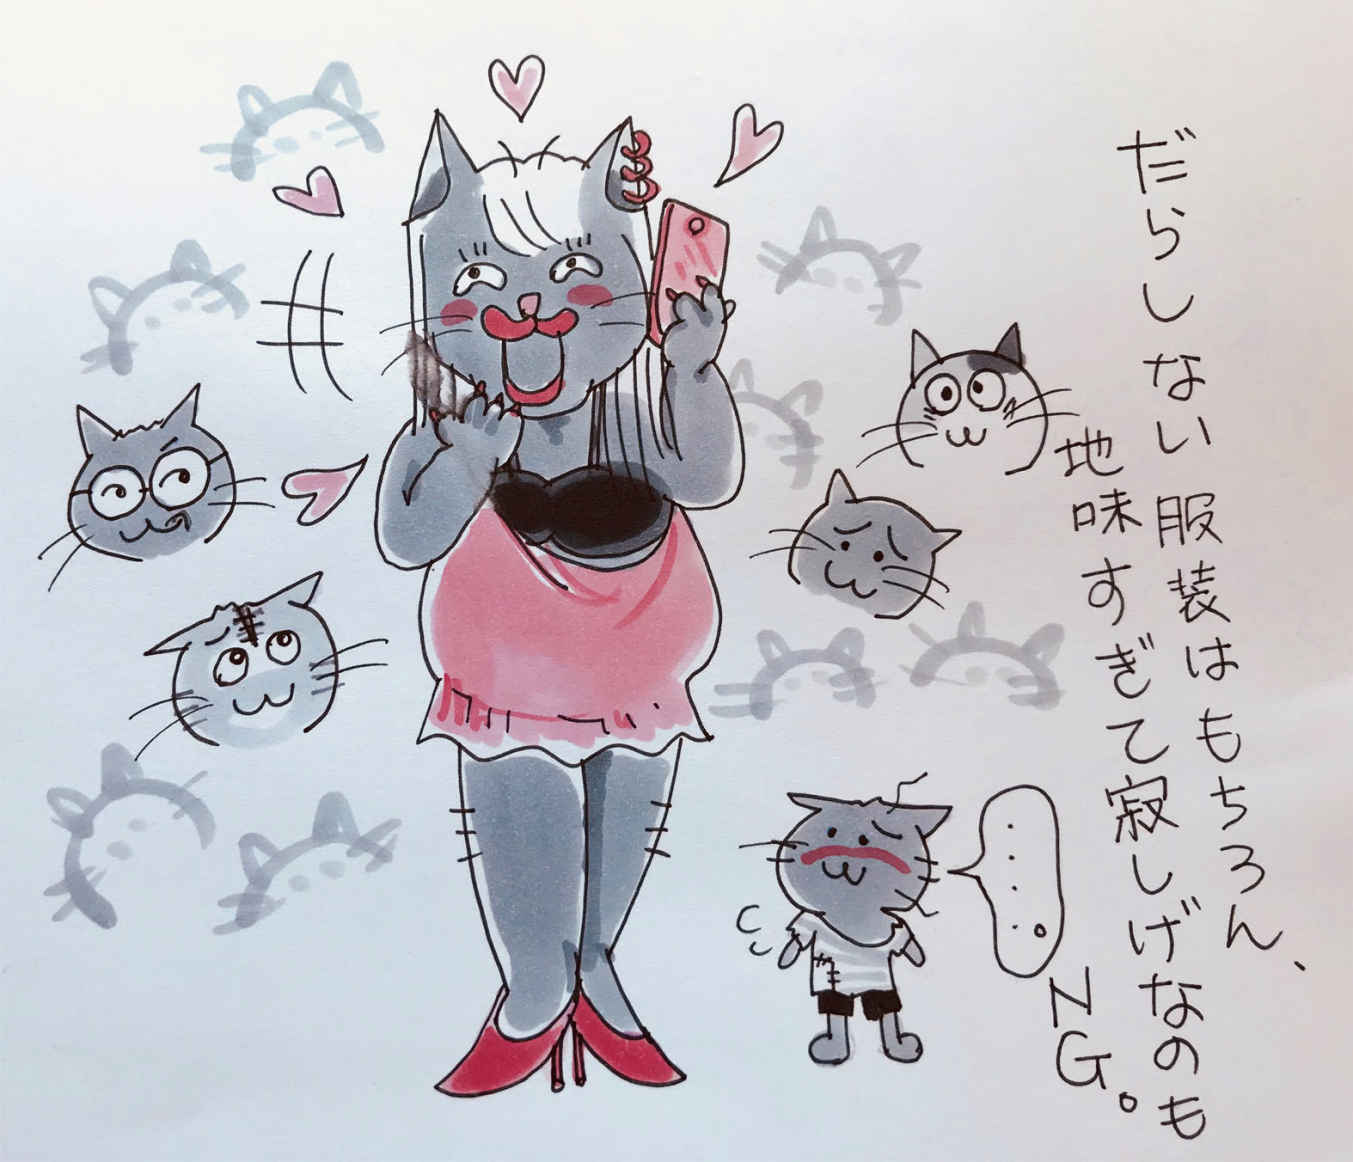 だらしない服装はもちろん、
地味すぎて寂しげなのも
NG。
…。